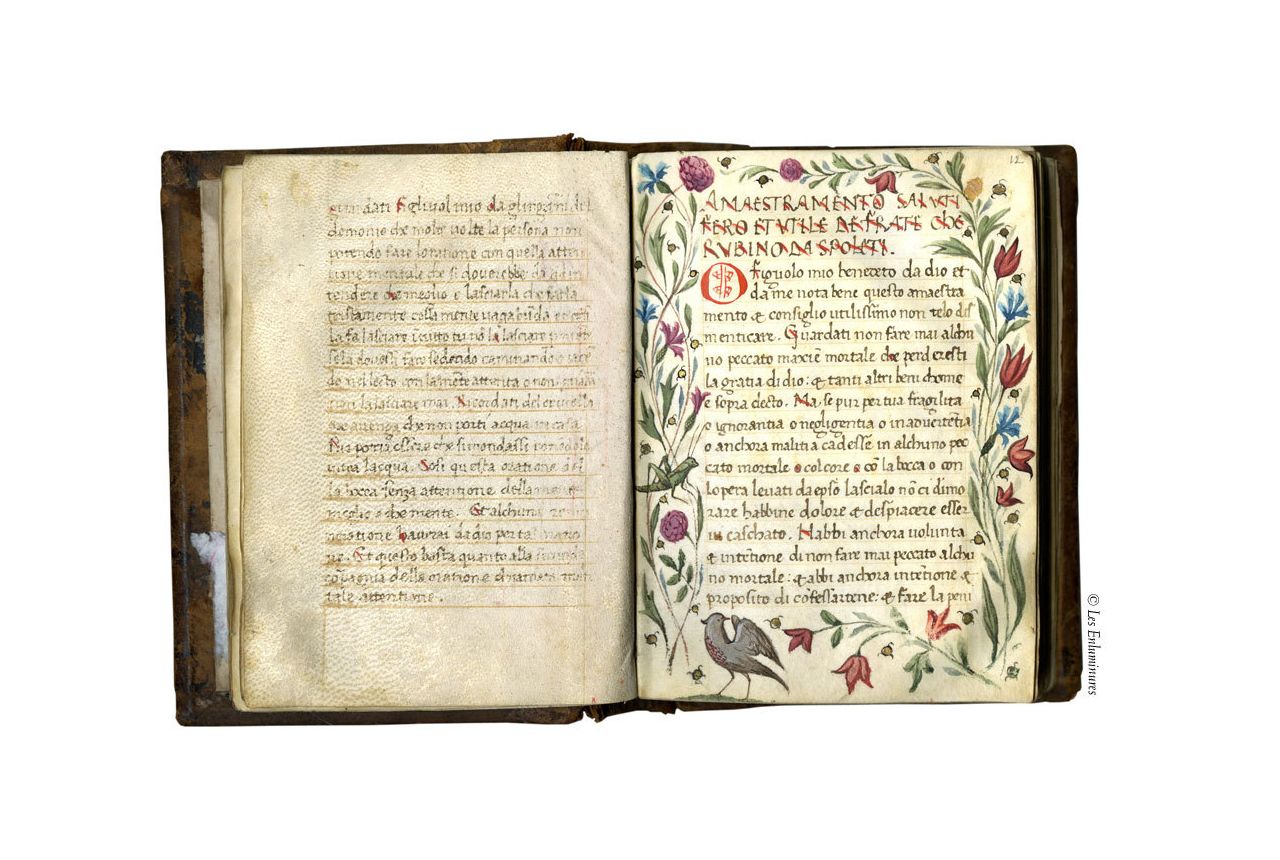 guardati figliuol mio da gli ingāni del
demonio che molte volte la persona non
potendo fare loratione con quella atten
tione mentale che si douerebbe da
tendere che meglio e lasciarla che farla
tristamente colla mente uagabūda
la fa lasciare tu nō la lasciare
se la douessi fare sedendo caminando o iace
do nel lecto con la mēte attenta o non
non la lasciare mai. Ricordati del
che auenga che non porti acqua in casa
Nō essere che si mondassi
lacqua. Cosi questa oratione
la bocca senza attentione della mente
meglio e che mente. Et alchuna
haurai da dio per tal
ne. Et questo basta quanto alla secunda
cōpagnia della oratione chiamata men
tale attentione.
12
AMAESTRAMENTO SALUTI
FERO ET UTILE DE FRATE CHE
RUBINO DA SPOLETI.
O figuolo mio benedeto da dio et
da me nota bene questo amaestra
mento & consiglio utilissimo non telo dis
menticare. Guardati non fare mai alchu
no peccato maxīe mortale che perderesti
la gratia di dio: & tanti altri beni chome
e sopra decto. Ma se pur per tua fragilita
o ignorantia o negligentia o inaduertētia
o anchora malitia cadesse in alchuno pec
cato mortale o col core o cō la bocca o con
lopera leuati da epso lascialo nō ci dimo
rare habbine dolore & despiacere esser
ui caschato. Habbi anchora uolunta
& intētione di non fare mai peccato alchu
no mortale: & abbi anchora intētione &
proposito di cōfessartene: & fare la peni
© Les Enluminures